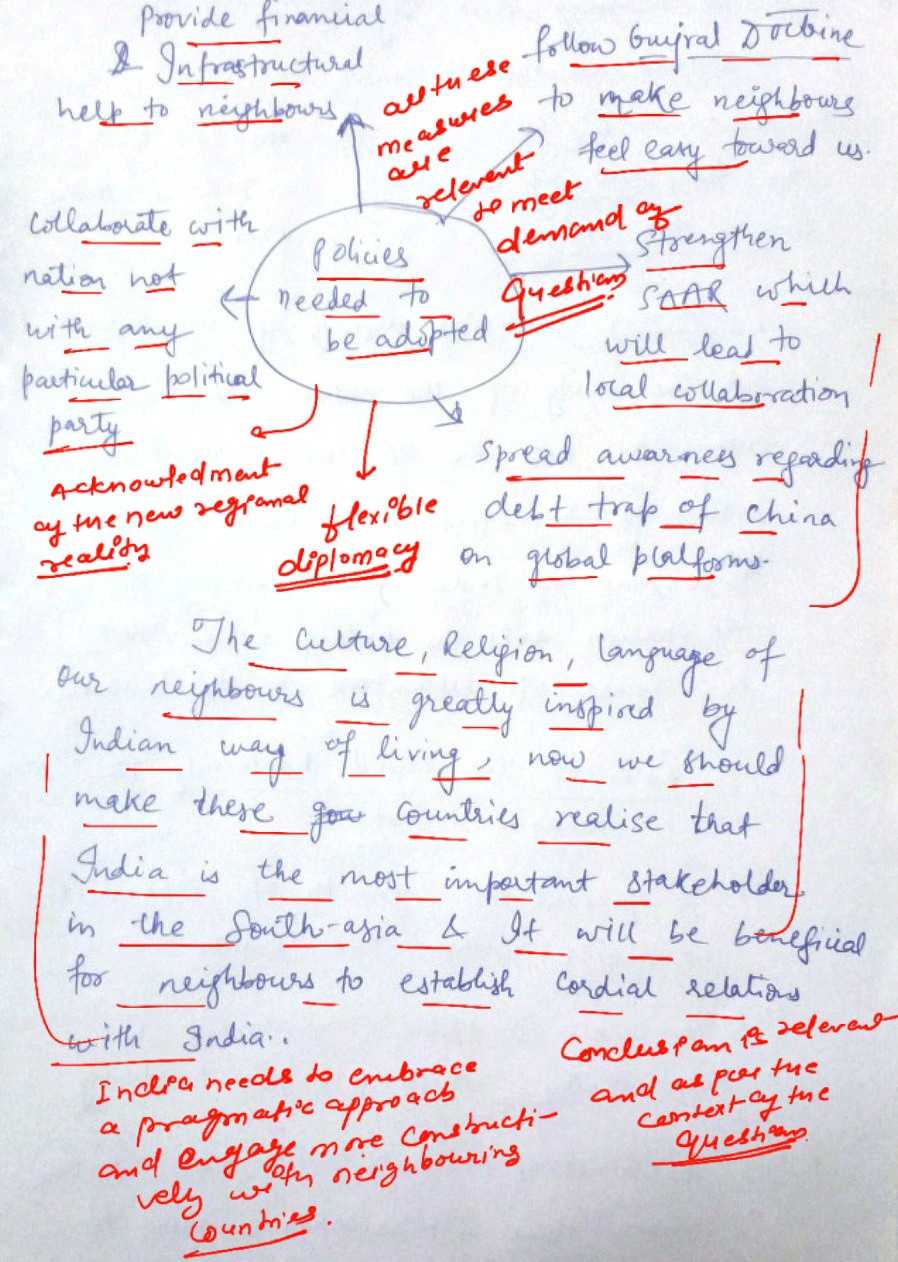 Provide financial
& Infrastructural
help to neighbours
follow Gujral Doctrine
to make neighbours
feel easy toward us.
all these
measures
are
relevent
to meet
demand of
Question
Collaborate with
nation not
with any
particular political
party
Policies
needed to
be adopted
Strengthen
SAAR which
will lead to
local collaboration
Spread awarness regarding
debt trap of China
on global platforms.
Acknowledment
of the new regional
reality
flexible
diplomacy
The Culture, Religion, language of
our neighbours is greatly inspired by
Indian way of living, now we should
make these countries realise that
India is the most important stakeholder
in the South-asia & It will be beneficial
for neighbours to establish Cordial relations
with India..
India needs to embrace
a pragmatic approach
and engage more constructi-
vely with neighbouring
countries.
Conclusion is relevent
and as per the
context of the
Question